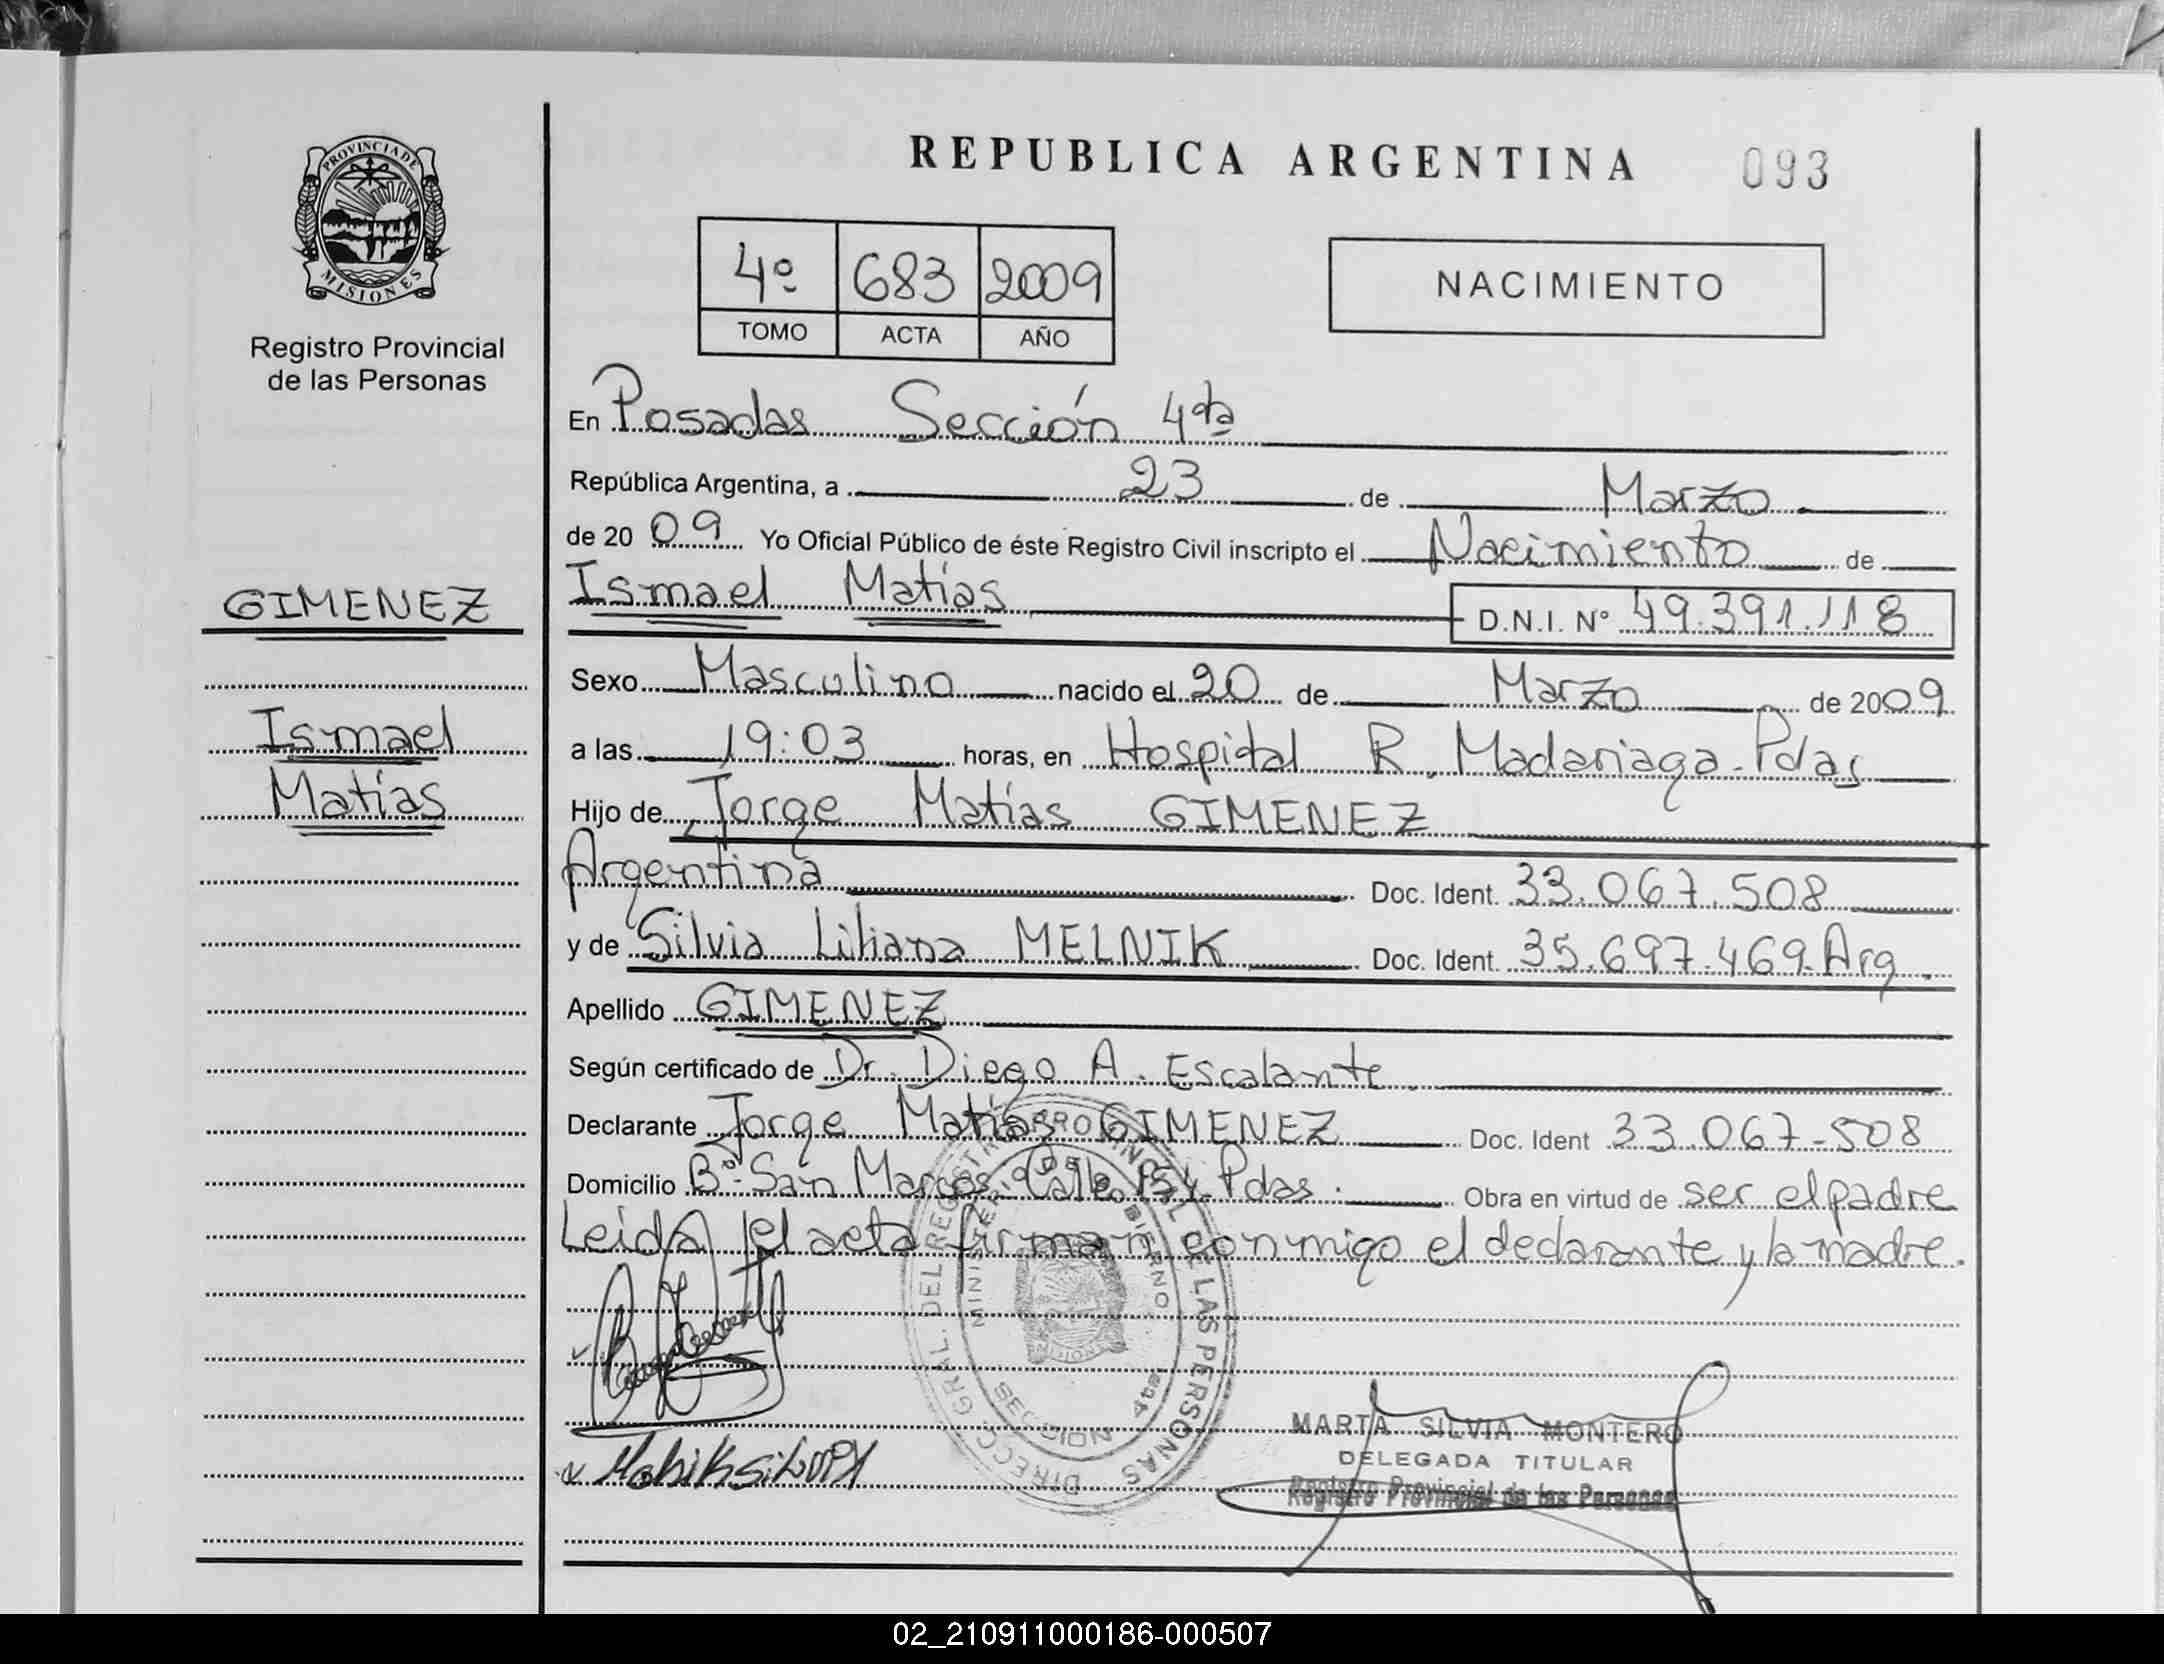 PROVINCIA DE
MISIONES
Registro Provincial
de las Personas
GIMENEZ
Ismael
Matías
REPUBLICA ARGENTINA 093
4º 683 2009
TOMO ACTA AÑO
NACIMIENTO
En Posadas Sección 4ta
República Argentina, a 23 de Marzo
de 2009 Yo Oficial Público de éste Registro Civil inscripto el Nacimiento de
Ismael Matías D.N.I. Nº 49.391.118
Sexo Masculino nacido el 20 de Marzo de 2009
a las 19:03 horas, en Hospital R. Madariaga-Pdas
Hijo de Jorge Matías GIMENEZ
Argentina Doc. Ident. 33.067.508
y de Silvia Liliana MELNIK Doc. Ident. 35.697.469 Arg.
Apellido GIMENEZ
Según certificado de Dr. Diego A. Escalante
Declarante Jorge Matías GIMENEZ Doc. Ident 33.067-508
Domicilio Bº San Marcos Calle 154 Pdas. Obra en virtud de ser el padre
Leida el acta firman conmigo el declarante y la madre.
DIRECC. GRAL. DEL REGISTRO PROVINCIAL DE LAS PERSONAS
MINISTERIO DE GOBIERNO
SECCION 4ta
MARTA SILVIA MONTERO
DELEGADA TITULAR
Registro Provincial de las Personas
02_210911000186-000507